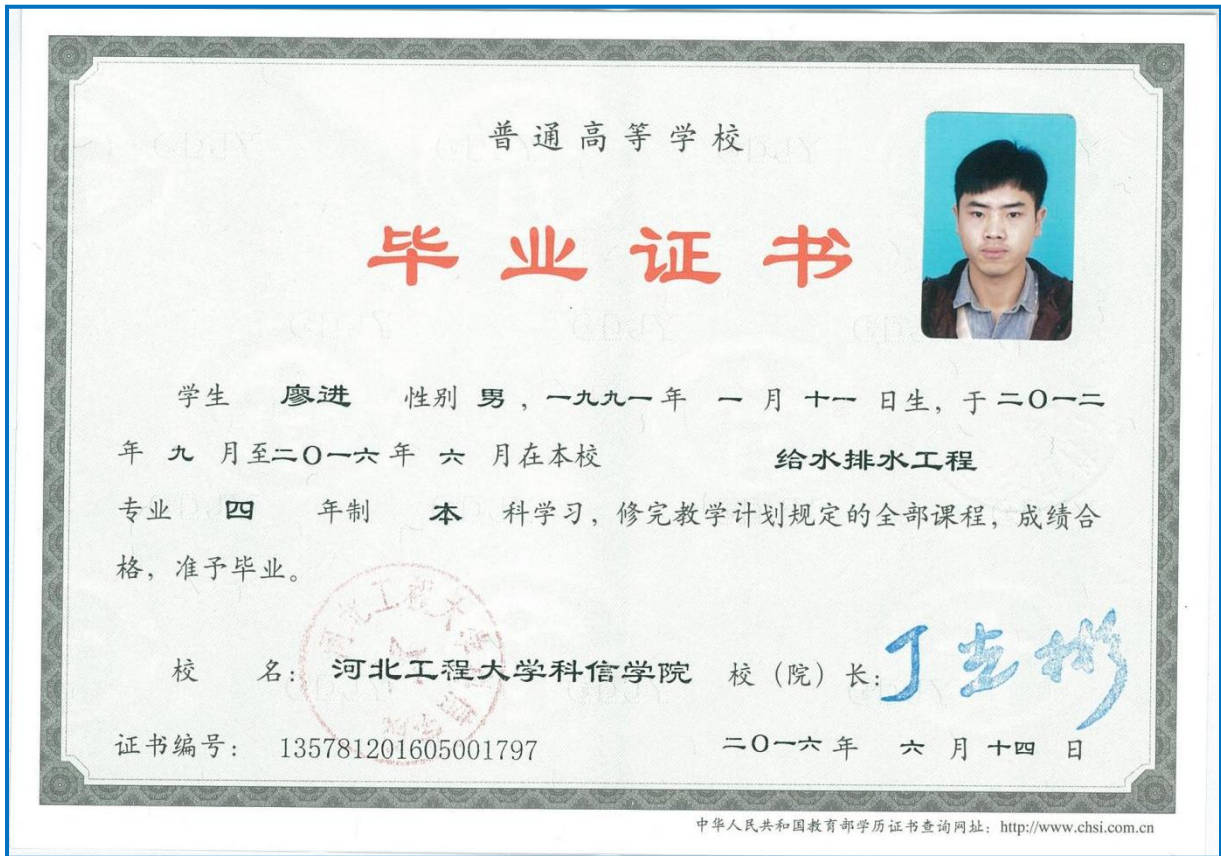 普通高等学校
毕业证书
学生 廖进 性别 男，一九九一年 一 月 十一 日生，于二〇一二
年 九 月至二〇一六年 六 月在本校 给水排水工程
专业 四 年制 本 科学习，修完教学计划规定的全部课程，成绩合
格，准予毕业。
校 名：河北工程大学科信学院 校（院）长：
证书编号： 135781201605001797 二〇一六年 六 月 十四 日
中华人民共和国教育部学历证书查询网址：http://www.chsi.com.cn